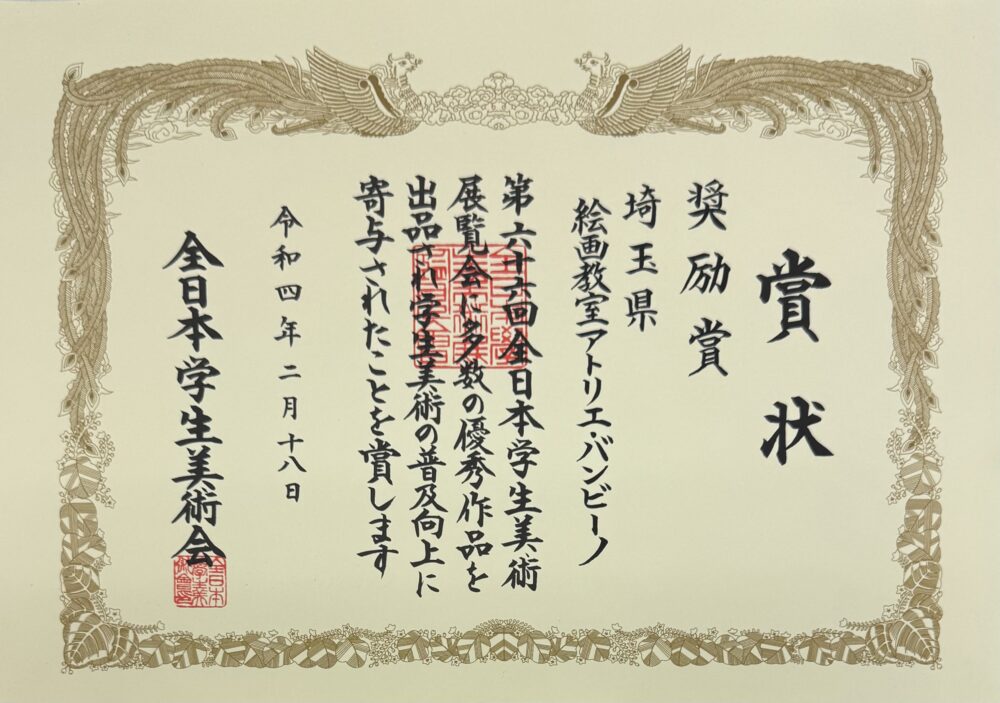 賞状
奨励賞
埼玉県
絵画教室アトリエ・バンビーノ
第六十六回全日本学生美術
展覧会に多数の優秀作品を
出品され学生美術の普及向上に
寄与されたことを賞します
令和四年二月十八日
全日本学生美術会